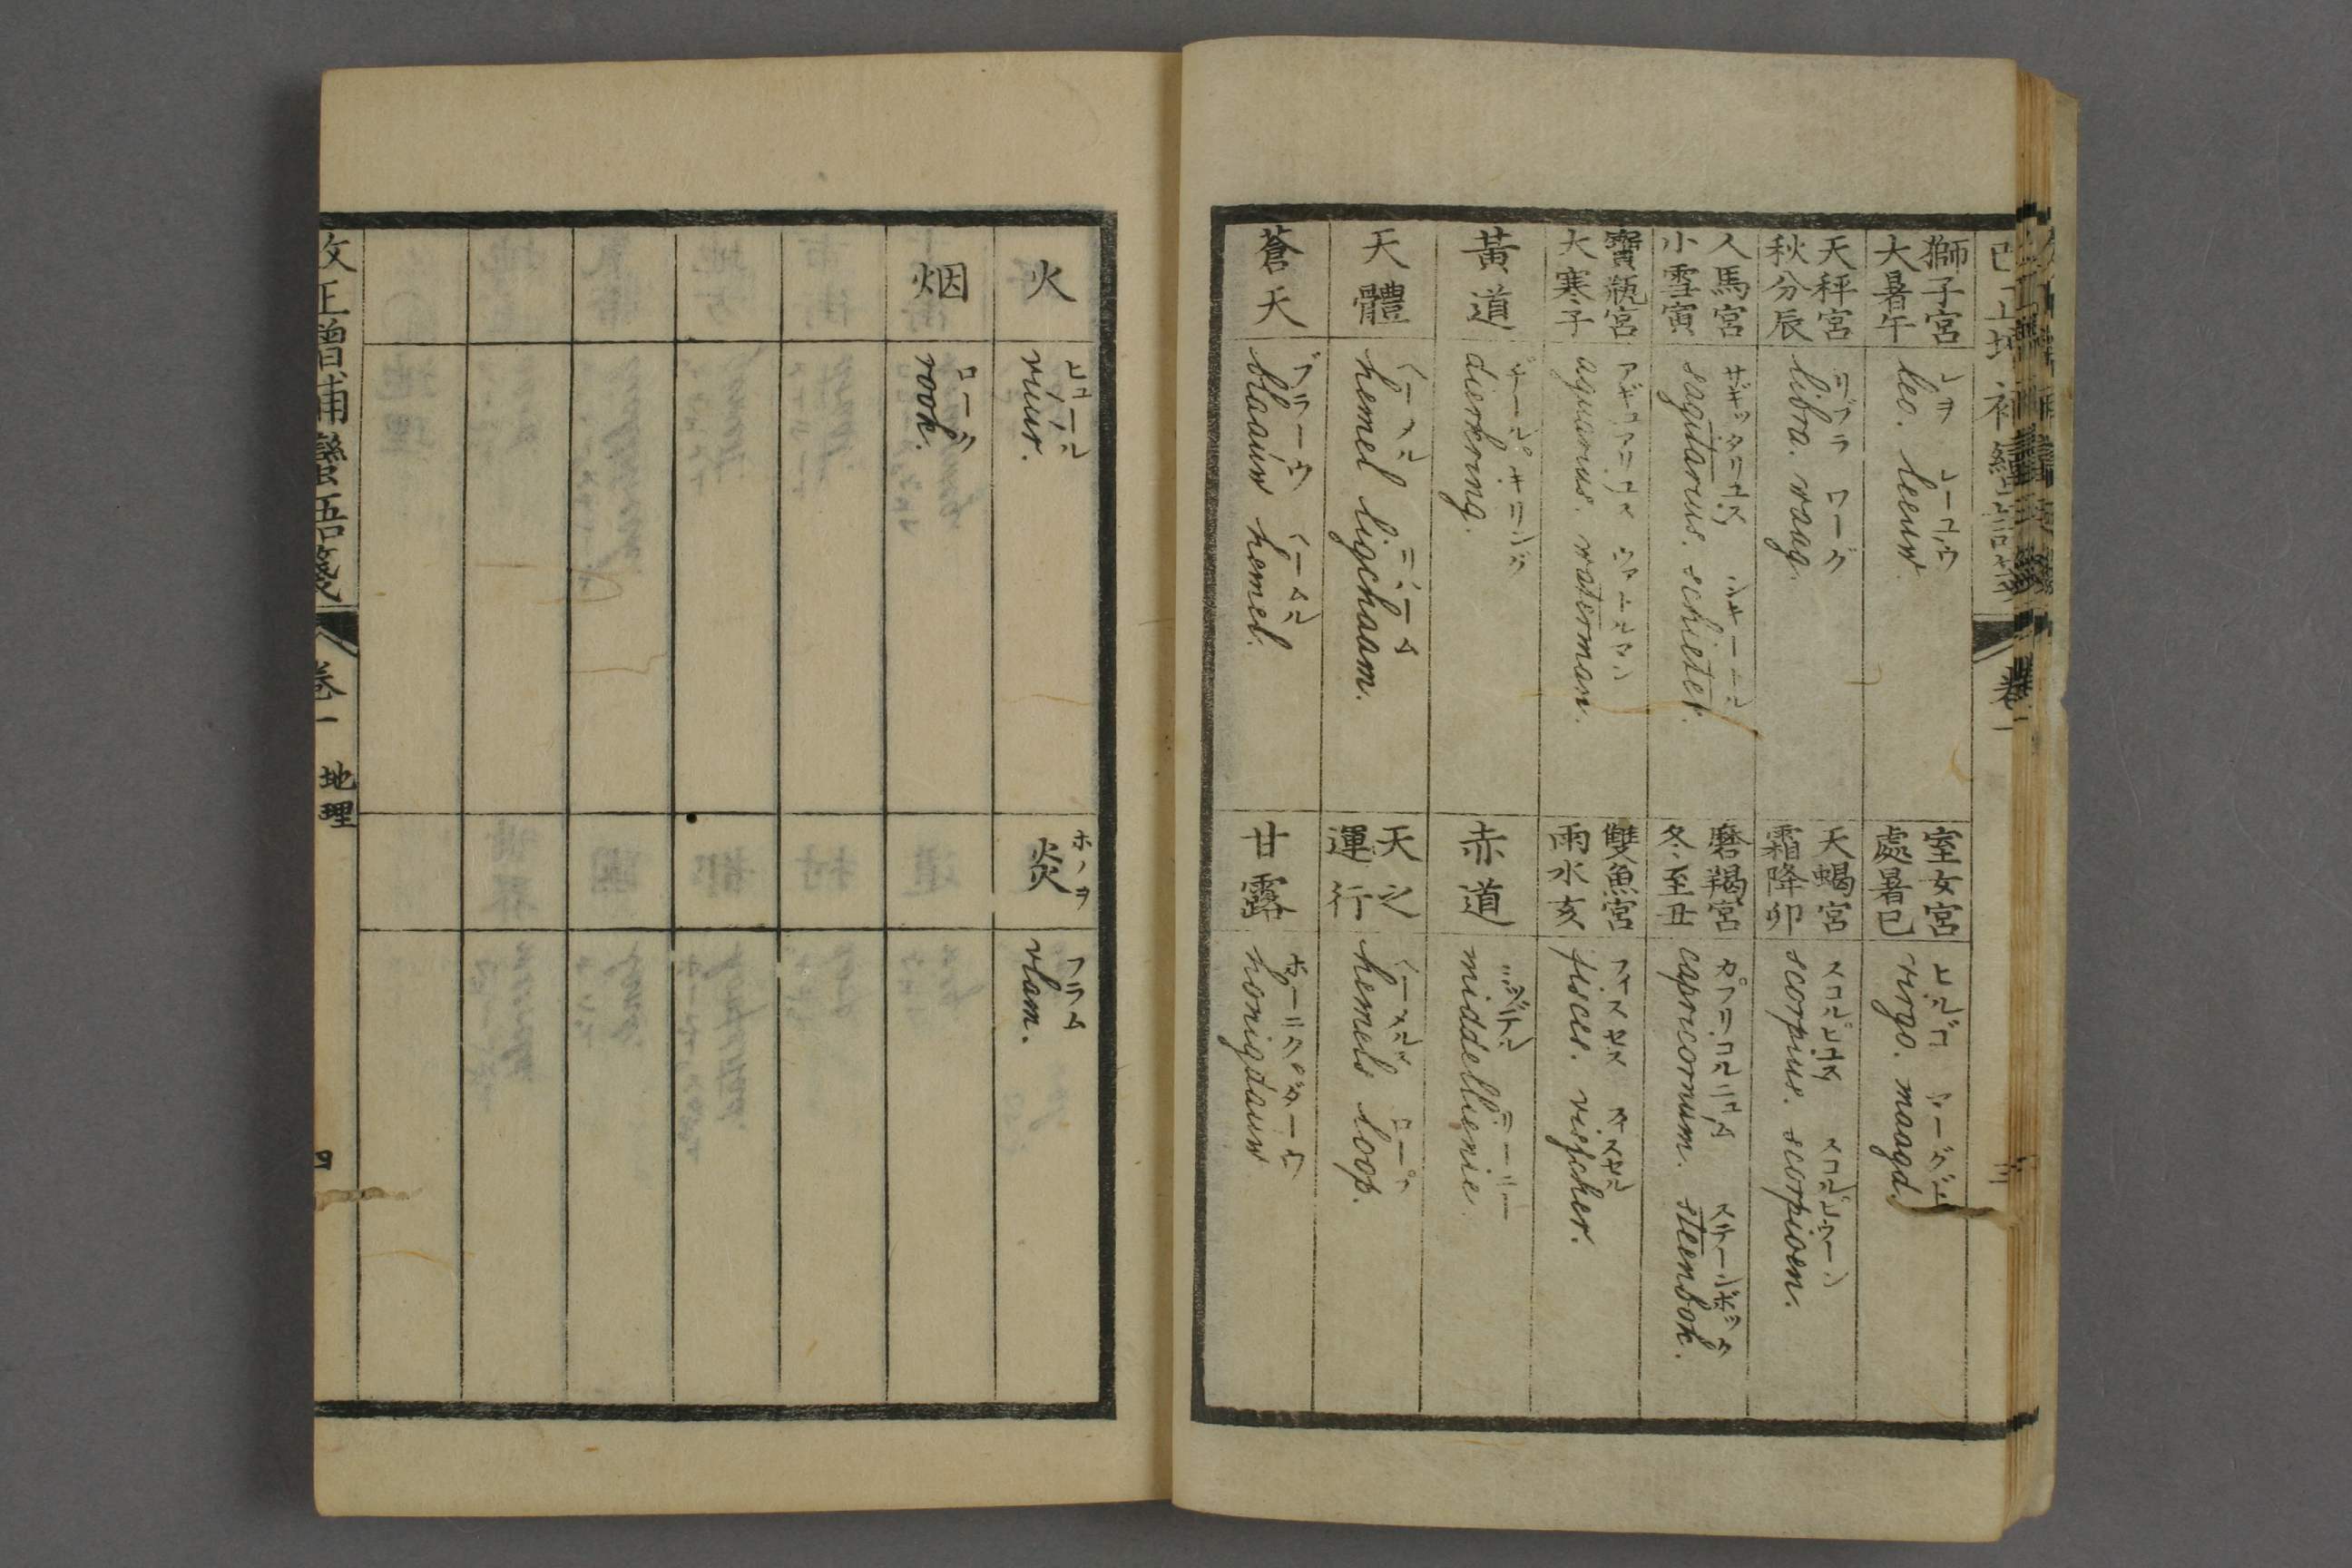 獅子宮
大暑午
レヲ レーユウ
leo. leeuw.
室女宮
處暑巳
ヒルゴ マーグデ
virgo. maagd.
天秤宮
秋分辰
リブラ ワーグ
libra. waag.
天蝎宮
霜降卯
スコルピユス スコルピウーン
scorpius. scorpioen.
人馬宮
小雪寅
サギッタリユス シキーテル
sagitarius. schieter.
磨羯宮
冬至丑
カプリコルニユム ステーンボック
capricornium. steenbok.
寶瓶宮
大寒子
アギュアリユス ワアートルマン
aquarius. waterman.
雙魚宮
雨水亥
フィスセス フィスセル
pisces. visscher.
黃道
ヂールキリング
dierkring.
赤道
ミッデルリーニー
middellienie.
天體
ヘーメル リハーム
hemel ligchaam.
天之
運行
ヘーメルス ロープ
hemels loop.
蒼天
ブラーウ ヘーメル
blaauw hemel.
甘露
ホーニクダーウ
honigdauw
火
ヒュール
vuur.
炎
ホノヲ
フラム
vlam.
烟
ローク
rook.
改正增補蠻語箋 卷一 地理 四